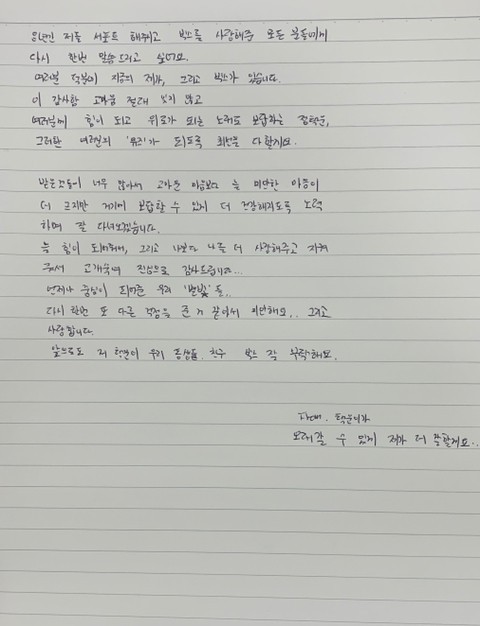 8년간 저를 서포트 해주고 빅스를 사랑해주 모든 분들에게
다시 한번 말씀드리고 싶어요.
여러분 덕분에 지금의 제가, 그리고 빅스가 있습니다.
이 감사함 고마움 절대 잊지 않고
여러분께 힘이 되고 위로가 되는 노래로 보답하는 정택운,
그러한 여러분의 '뮤지'가 되도록 최선을 다할게요.
받은것들이 너무 많아서 고마운 마음보다 늘 미안한 마음이
더 크지만 거기에 보답할 수 있게 더 건강해지도록 노력
하며 잘 다녀오겠습니다.
늘 힘이 되어줘서, 그리고 나보다 나를 더 사랑해주고 지켜
줘서 고개숙여 진심으로 감사드립니다...
언제나 중심이 되어준 우리 '별빛'들..
다시 한번 또 다른 걱정을 준 거 같아서 미안해요.. 그리고
사랑합니다.
앞으로도 저 학연이 우리 동생들 친구 빅스 잘 부탁해요.
택운이가
오래갈 수 있게 제가 더 잘할게요..